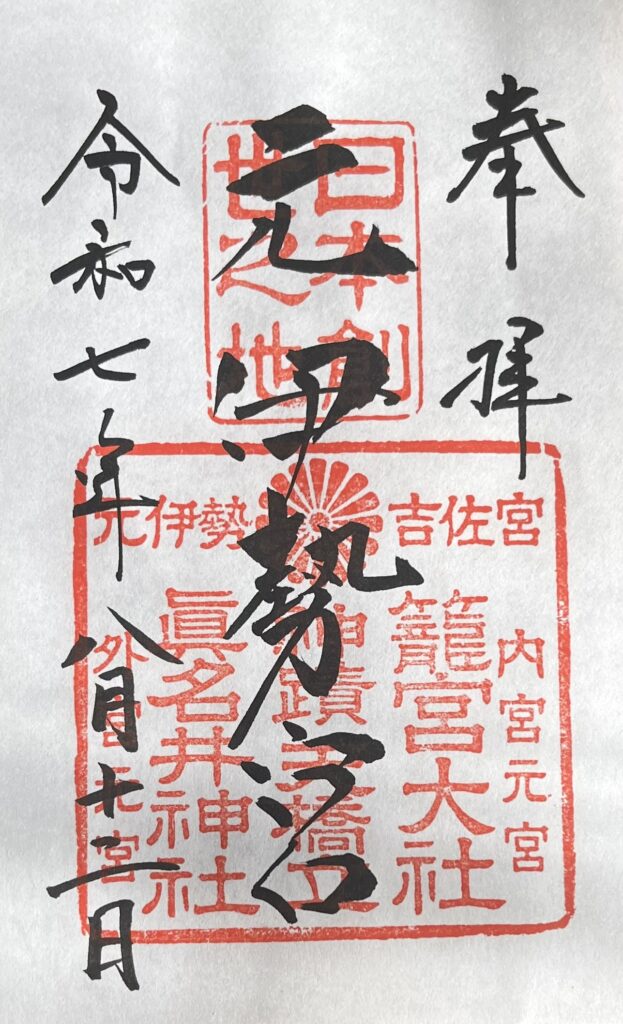 奉拝
元伊勢宮
令和七年八月十二日
日本創
世之地
吉佐宮
元伊勢
内宮元宮
籠宮大社
神蹟天橋立
眞名井神社
外宮元宮